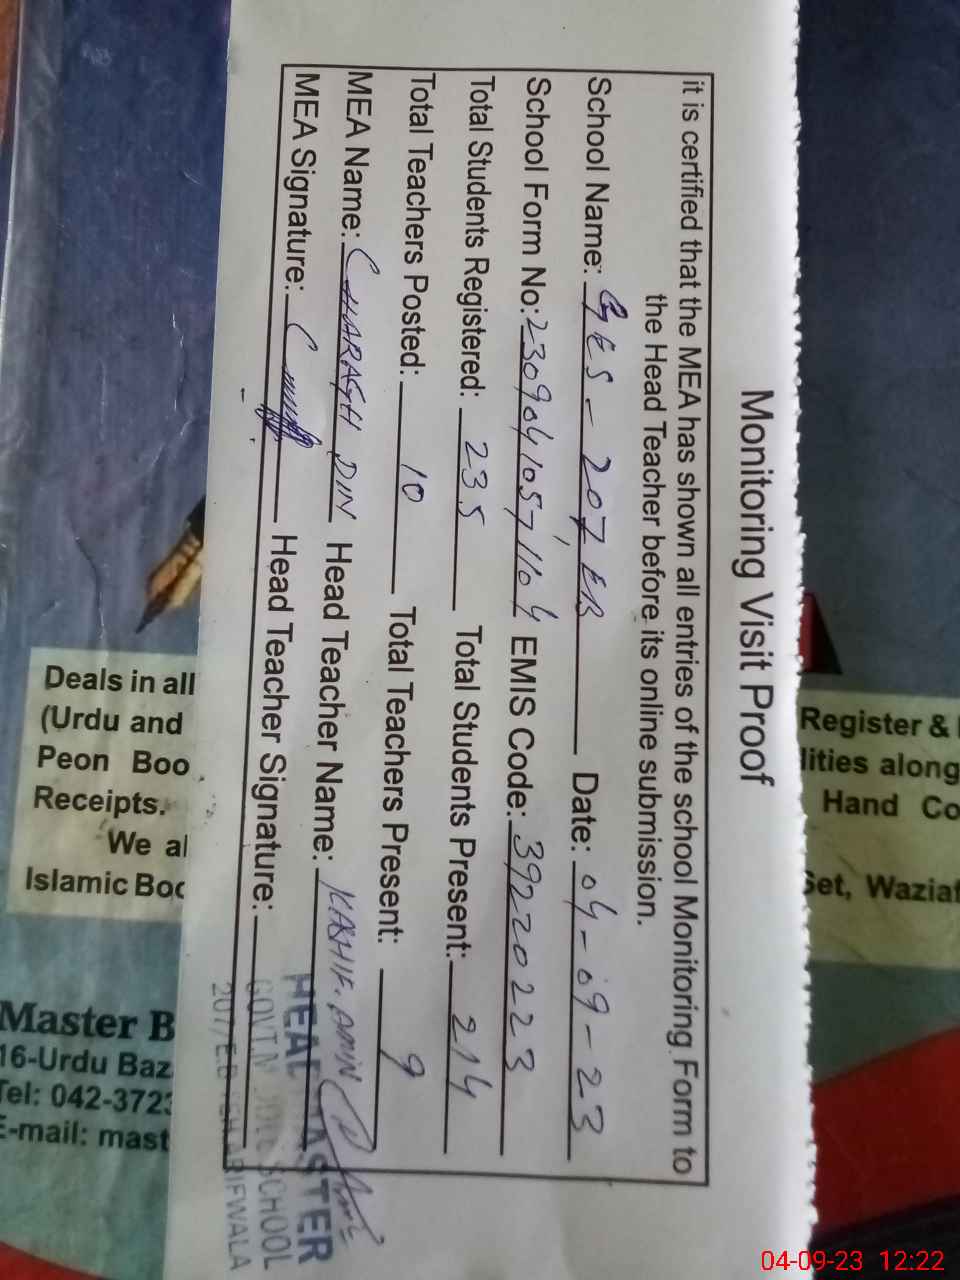 Monitoring Visit Proof
it is certified that the MEA has shown all entries of the school Monitoring Form to
the Head Teacher before its online submission.
School Name: GES - 207, EB Date: 04-09-23
School Form No: 23090410571104 EMIS Code: 39220223
Total Students Registered: 235 Total Students Present: 214
Total Teachers Posted: 10 Total Teachers Present: 9
MEA Name: CHARAGH DIN Head Teacher Name: KASHIF. AMIN
MEA Signature: Head Teacher Signature:
HEAD MASTER
SCHOOL
ARIFWALA
Deals in all
(Urdu and
Peon Boo
Receipts.
We al
Islamic Boo
Master B
16-Urdu Baz
Tel: 042-372
E-mail: mast
Register &
lities along
Hand Co
Set, Wazia
04-09-23 12:22